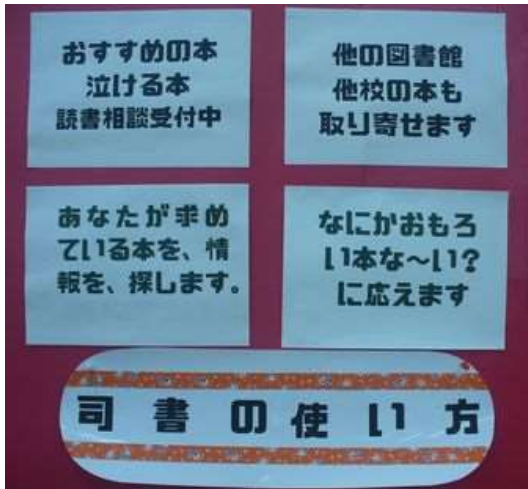 おすすめの本
泣ける本
読書相談受付中
他の図書館
他校の本も
取り寄せます
あなたが求め
ている本を、情
報を、探します。
なにかおもろ
い本な〜い?
に応えます
司書の使い方